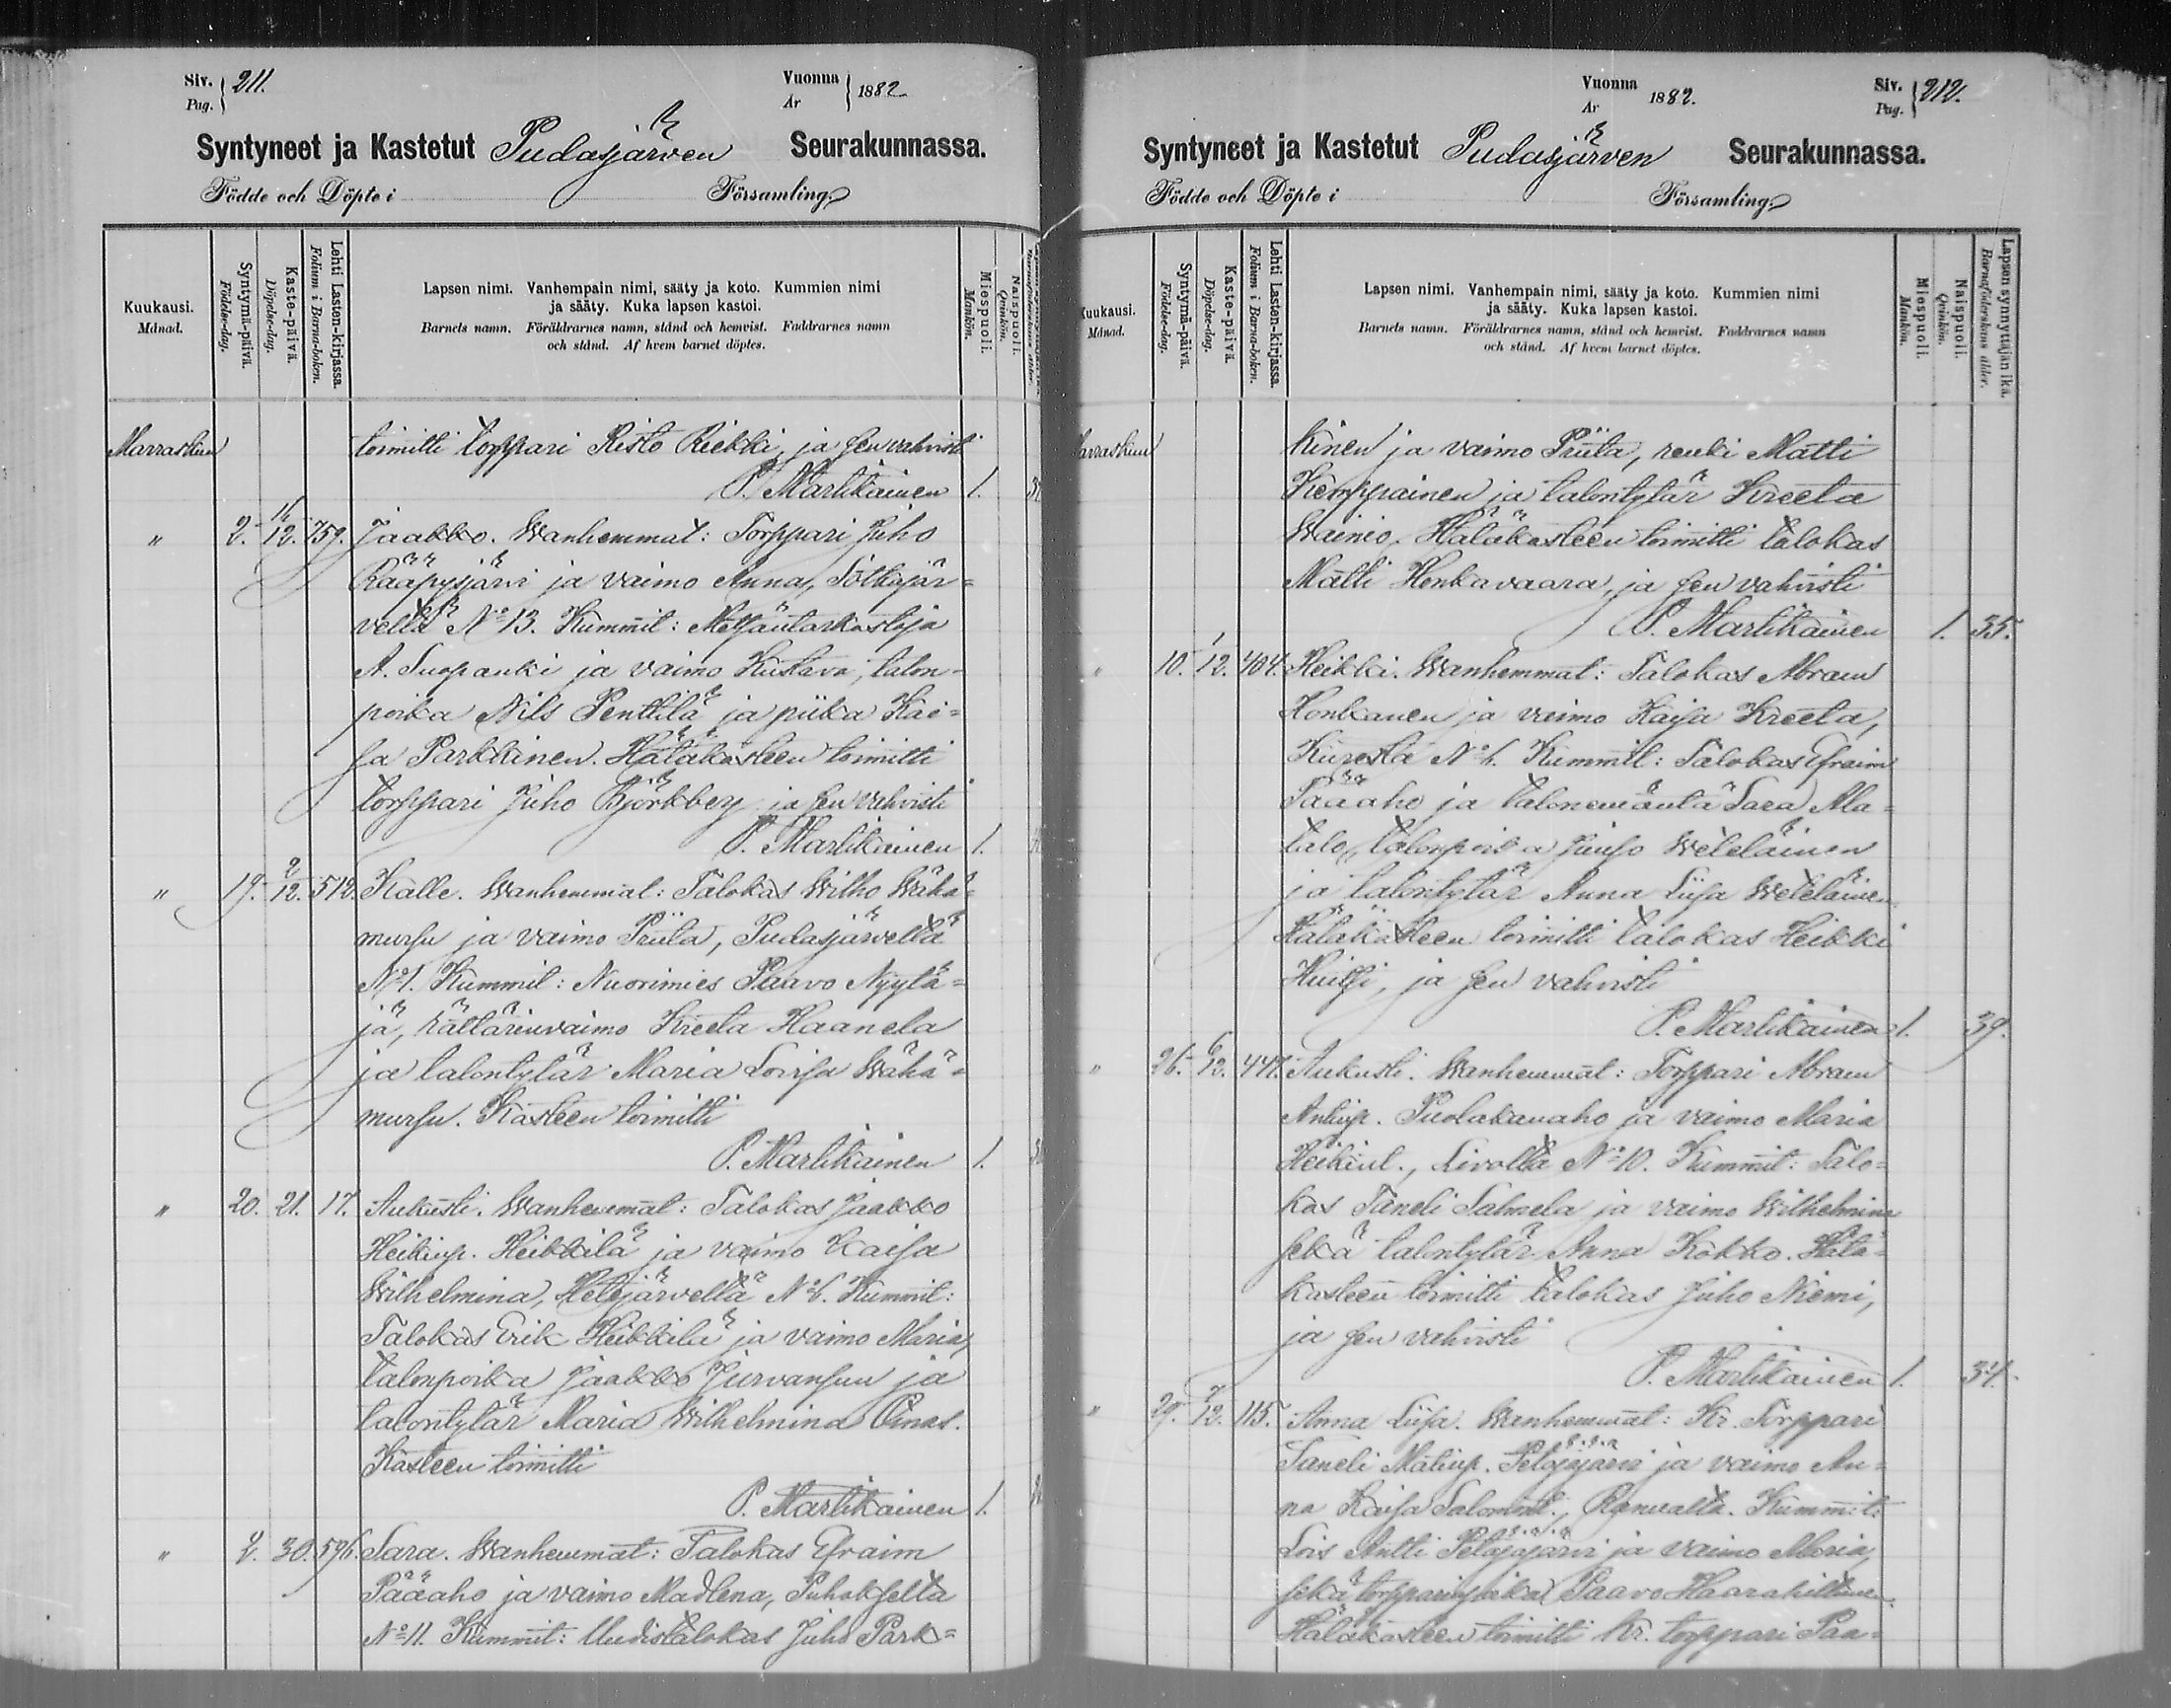 Siv. 211.
Pag.
Vuonna 1882
År
Syntyneet ja Kastetut Pudasjärven Seurakunnassa.
Födde och Döpte i Församling.
Kuukausi.
Månad.
Syntymä-päivä.
Födelse-dag.
Kaste-päivä.
Döpelse-dag.
Lehti Lasten-kirjassa.
Folium i Barna-boken.
Lapsen nimi. Vanhempain nimi, sääty ja koto. Kummien nimi
ja sääty. Kuka lapsen kastoi.
Barnets namn. Föräldrarnes namn, stånd och hemvist. Faddrarnes namn
och stånd. Af hvem barnet döptes.
Miespuoli.
Mankön.
Naispuoli.
Qvinkön.
Marraskuu toimitti torppari Risto Riekki, ja sen vahvisti
P. Martikainen 1.
" 2. 12. 759. Jaakko. Wanhemmat: Torppari Juho
Rääpysjärvi ja vaimo Anna, Sotkajär=
vellä No 13. Kummit: Metsäntarkastaja
A. Suopanki ja vaimo Kustava, talon=
poika Nils Penttilä ja piika Kai=
sa Parkkinen. Hätäkasteen toimitti
torppari Juho Björkberg ja sen vahvisti
P. Martikainen 1.
" 19. 2/12. 512. Kalle. Wanhemmat: Talokas Wilho Wähä=
mursu ja vaimo Priita, Pudasjärveltä
No 1. Kummit: Nuorimies Paavo Nyytä=
jä, rättärinvaimo Kreeta Haanela
ja talontytär Maria Loviisa Wähä=
mursu. Kasteen toimitti
P. Martikainen 1.
" 20. 21. 17. Aukusti. Wanhemmat: Talokas Jaakko
Heikinp. Heikkilä ja vaimo Kaisa
Wilhelmina, Hetejärveltä No 6. Kummit:
Talokas Erik Heikkilä ja vaimo Maria,
talonpoika Jaakko Jurvansuu ja
talontytär Maria Wilhelmina Oinas.
Kasteen toimitti
P. Martikainen 1.
" 2. 30. 596. Sara. Wanhemmat: Talokas Efraim
Pääaho ja vaimo Madlena, Puhokselta
No 11. Kummit: Uudistalokas Juho Park=
Vuonna 1882.
År
Siv. 212.
Pag.
Syntyneet ja Kastetut Pudasjärven Seurakunnassa.
Födde och Döpte i Församling.
Kuukausi.
Månad.
Syntymä-päivä.
Födelse-dag.
Kaste-päivä.
Döpelse-dag.
Lehti Lasten-kirjassa.
Folium i Barna-boken.
Lapsen nimi. Vanhempain nimi, sääty ja koto. Kummien nimi
ja sääty. Kuka lapsen kastoi.
Barnets namn. Föräldrarnes namn, stånd och hemvist. Faddrarnes namn
och stånd. Af hvem barnet döptes.
Miespuoli.
Mankön.
Naispuoli.
Qvinkön.
Lapsen synnyttäjän ikä.
Barnaföderskans ålder.
Marraskuu kinen ja vaimo Priita, renki Matti
Kemppainen ja talontytär Kreeta
Wainio. Hätäkasteen toimitti talokas
Matti Honkavaara, ja sen vahvisti
P. Martikainen 1. 35.
" 10. 1/12. 404. Heikki. Wanhemmat: Talokas Abram
Honkanen ja vaimo Kaisa Kreeta,
Kuresta No 6. Kummit: Talokas Efraim
Pääaho ja talonemäntä Sara Ala=
talo, talonpoika Juuso Weteläinen
ja talontytär Anna Liisa Weteläinen
Hätäkasteen toimitti talokas Heikki
ja sen vahvisti
P. Martikainen 1. 39.
" 26. 6/12. 447. Aukusti. Wanhemmat: Torppari Abram
Antinp. Puolakanaho ja vaimo Maria
Heikint., Livolta No 10. Kummit: Talo=
kas Taneli Salmela ja vaimo Wilhelmina
sekä talontytär Anna Kokko. Hätä=
kasteen toimitti talokas Juho Niemi,
ja sen vahvisti
P. Martikainen 1. 34.
" 29. 7/12. 115. Anna Liisa. Wanhemmat: Kr. Torppari
Taneli Matinp. Petäjäjärvi ja vaimo An=
na Kaisa Salomont., Ranualta. Kummit:
Lois Antti Petäjäjärvi ja vaimo Maria
sekä torpparinpoika Paavo Haarahiltunen.
Hätäkasteen toimitti kr. torppari Paa=